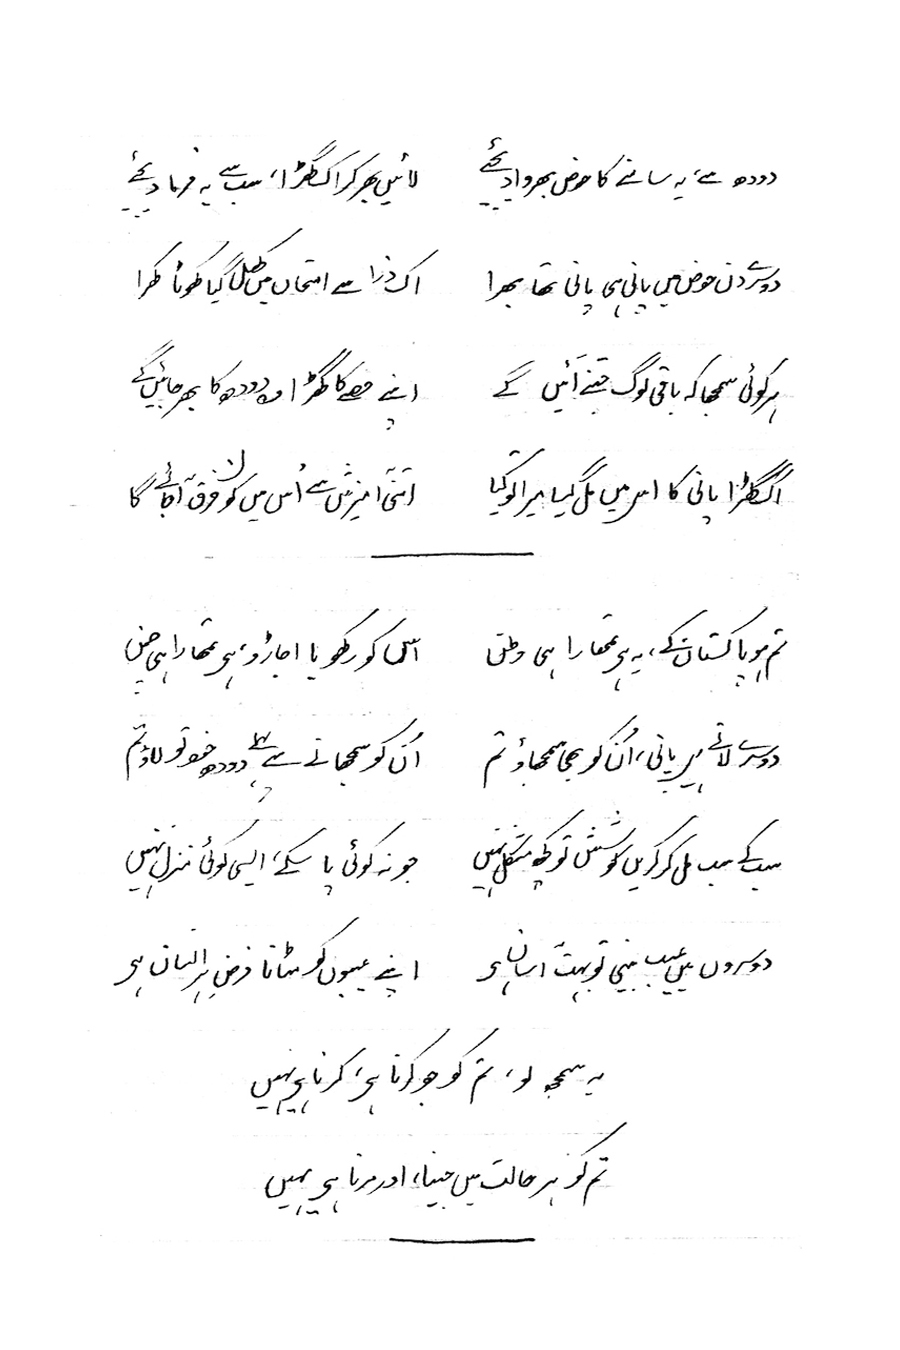 دودھ سے، یہ سامنے کا حوض بھروا دیجئے لائیں بھر کر اک گھڑا، سب سے یہ فرما دیجئے
دوسرے دن حوض میں پانی ہی پانی تھا بھرا اک ذرا سے امتحاں میں کھل گیا کھوٹا کھرا
ہر کوئی سمجھا کہ باقی لوگ جتنے آئیں گے اپنے حصے کا گھڑا وہ دودھ کا بھر جائیں گے
اک گھڑا پانی کا اس میں مل گیا میرا تو کیا اتنی آمیزش سے اُس میں کون فرق آ جائے گا
تم ہو پاکستان کے، یہ ہے تمھارا ہی وطن اس کو رکھو یا اجاڑو، ہے تمھارا ہی چمن
دوسرے لاتے ہیں پانی، اُن کو بھی سمجھاؤ تم اُن کو سمجھانے سے پہلے دودھ خود تو لاؤ تم
سب کے سب مل کر کریں کوشش تو کچھ مشکل نہیں جو نہ کوئی پا سکے، ایسی کوئی منزل نہیں
دوسروں میں عیب بینی تو بہت آسان ہے اپنے عیبوں کو مٹانا فرضِ ہر انسان ہے
یہ سمجھ لو، تم کو جو کرنا ہے، کرنا ہے یہیں
تم کو ہر حالت میں جینا، اور مرنا ہے یہیں